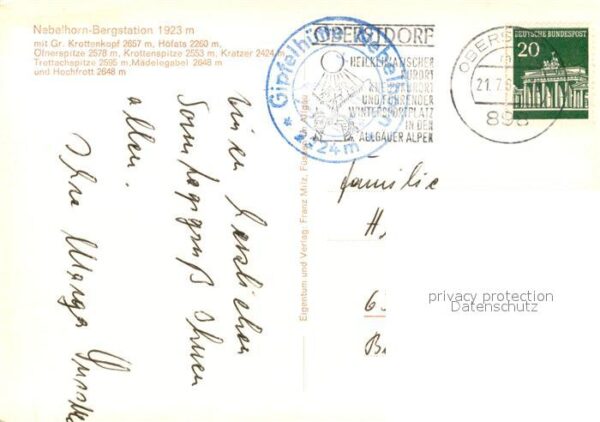 Nebelhorn-Bergstation 1923 m
mit Gr. Krottenkopf 2657 m, Höfats 2260 m,
Ofnerspitze 2578 m, Krottenspitze 2553 m, Kratzer 2424 m
Trottachspitze 2595 m, Mädelegabel 2648 m
und Hochfrott 2648 m
Gipfelhütte Nebelhorn
2224 m
OBERSTDORF
HEILKLIMATISCHER
KURORT
KNEIPPKURORT
UND FÜHRENDER
WINTERSPORTPLATZ
IN DEN
ALLGÄUER ALPEN
OBERS
21.7.6
898
DEUTSCHE BUNDESPOST
20
einen herzlichen
Sonntagsgruß Ihnen
allen.
Ihre Marga
Eigentum und Verlag: Franz Milz, Füssen im Allgäu
Familie
H
6
B
privacy protection
Datenschutz